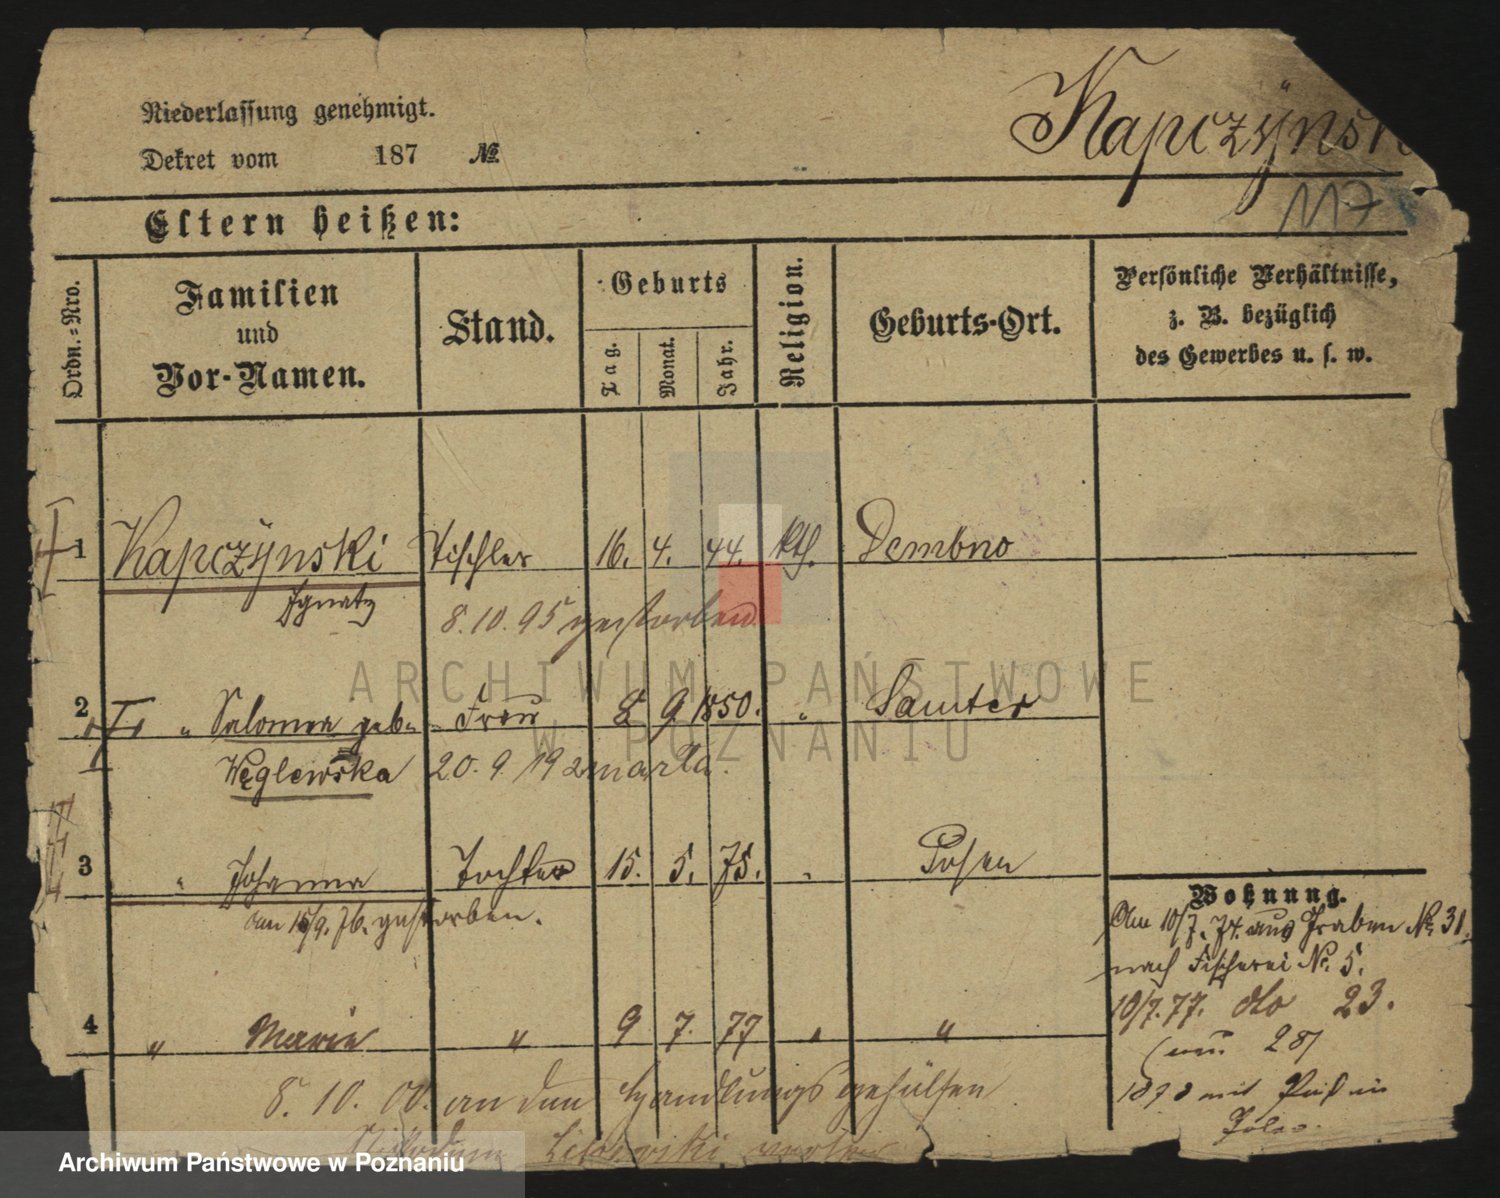 Niederlassung genehmigt.
Dekret vom 187 No
Kapczÿnski
117
Eltern heißen:
Ordn.=Nro.
Familien
und
Vor-Namen.
Stand.
Geburts
Tag.
Monat.
Jahr.
Religion.
Geburts-Ort.
Persönliche Verhältnisse,
z. B. bezüglich
des Gewerbes u. s. w.
1 Kapczÿnski Tischler 16. 4. 44. kth. Dembno
Ignatz
8. 10. 95 gestorben
2 " Salomea geb. Frau 2 9 1850. " Samter
Węglewska 20. 9. 19 zmarła.
3 " Johanna Tochter 15. 5. 75. " Posen
am 15/9. 76. gestorben.
Wohnung.
Am 10/7. 74. aus Graben No. 31.
nach Fischerei No. 5.
10/7. 77. dto 23.
28/
1878 mit
4 " Marie " 9 7. 77 " "
8. 10. 00. an den Handlungsgehülfen
ARCHIWUM PAŃSTWOWE
W POZNANIU
Archiwum Państwowe w Poznaniu